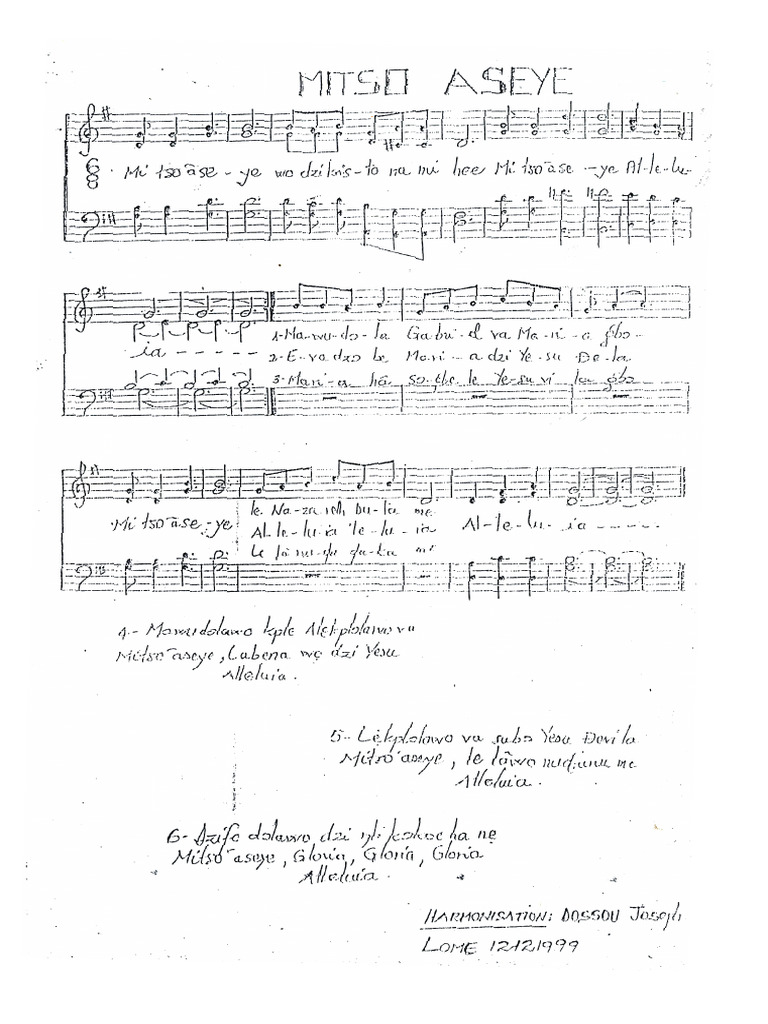 MITSO ASEYE
6
8
Mi tso ãse - ye wo dzi kris-to na mi hee Mi tso ãse - ye Al-le-lu-
ia - - - - -
1-Ma-wu-dɔ-la Ga bri-el va Ma-ri-a gbɔ-
2-E-va dzɔ be Mari-a dzi Ye-su Ɖe-la
3-Mari-a hã so-gbe le Ye-su vi la gbɔ
Mi tso ãse-ye
le Na-za reth du-la me
Al-le-lu-ia 'le-lu-ia
Le lã-nu-ɖu ɖa-ka me
Al-le-lu-ia - - - - -
4.- Mawudɔlawo kple Alẽkplɔlawo va
Mitso ãseye, Labena wo dzi Yesu
Alleluia.
5.- Lẽkplɔlawo va subɔ Yesu Ɖevi la
Mitso ãseye, le lãwo nuɖunu me
Alleluia.
6- Dzifo dɔlawo dzi ha nɛ
Mitso ãseye, Gloria, Gloria, Gloria
Alleluia.
HARMONISATION: DOSSOU Joseph
LOME 12121999